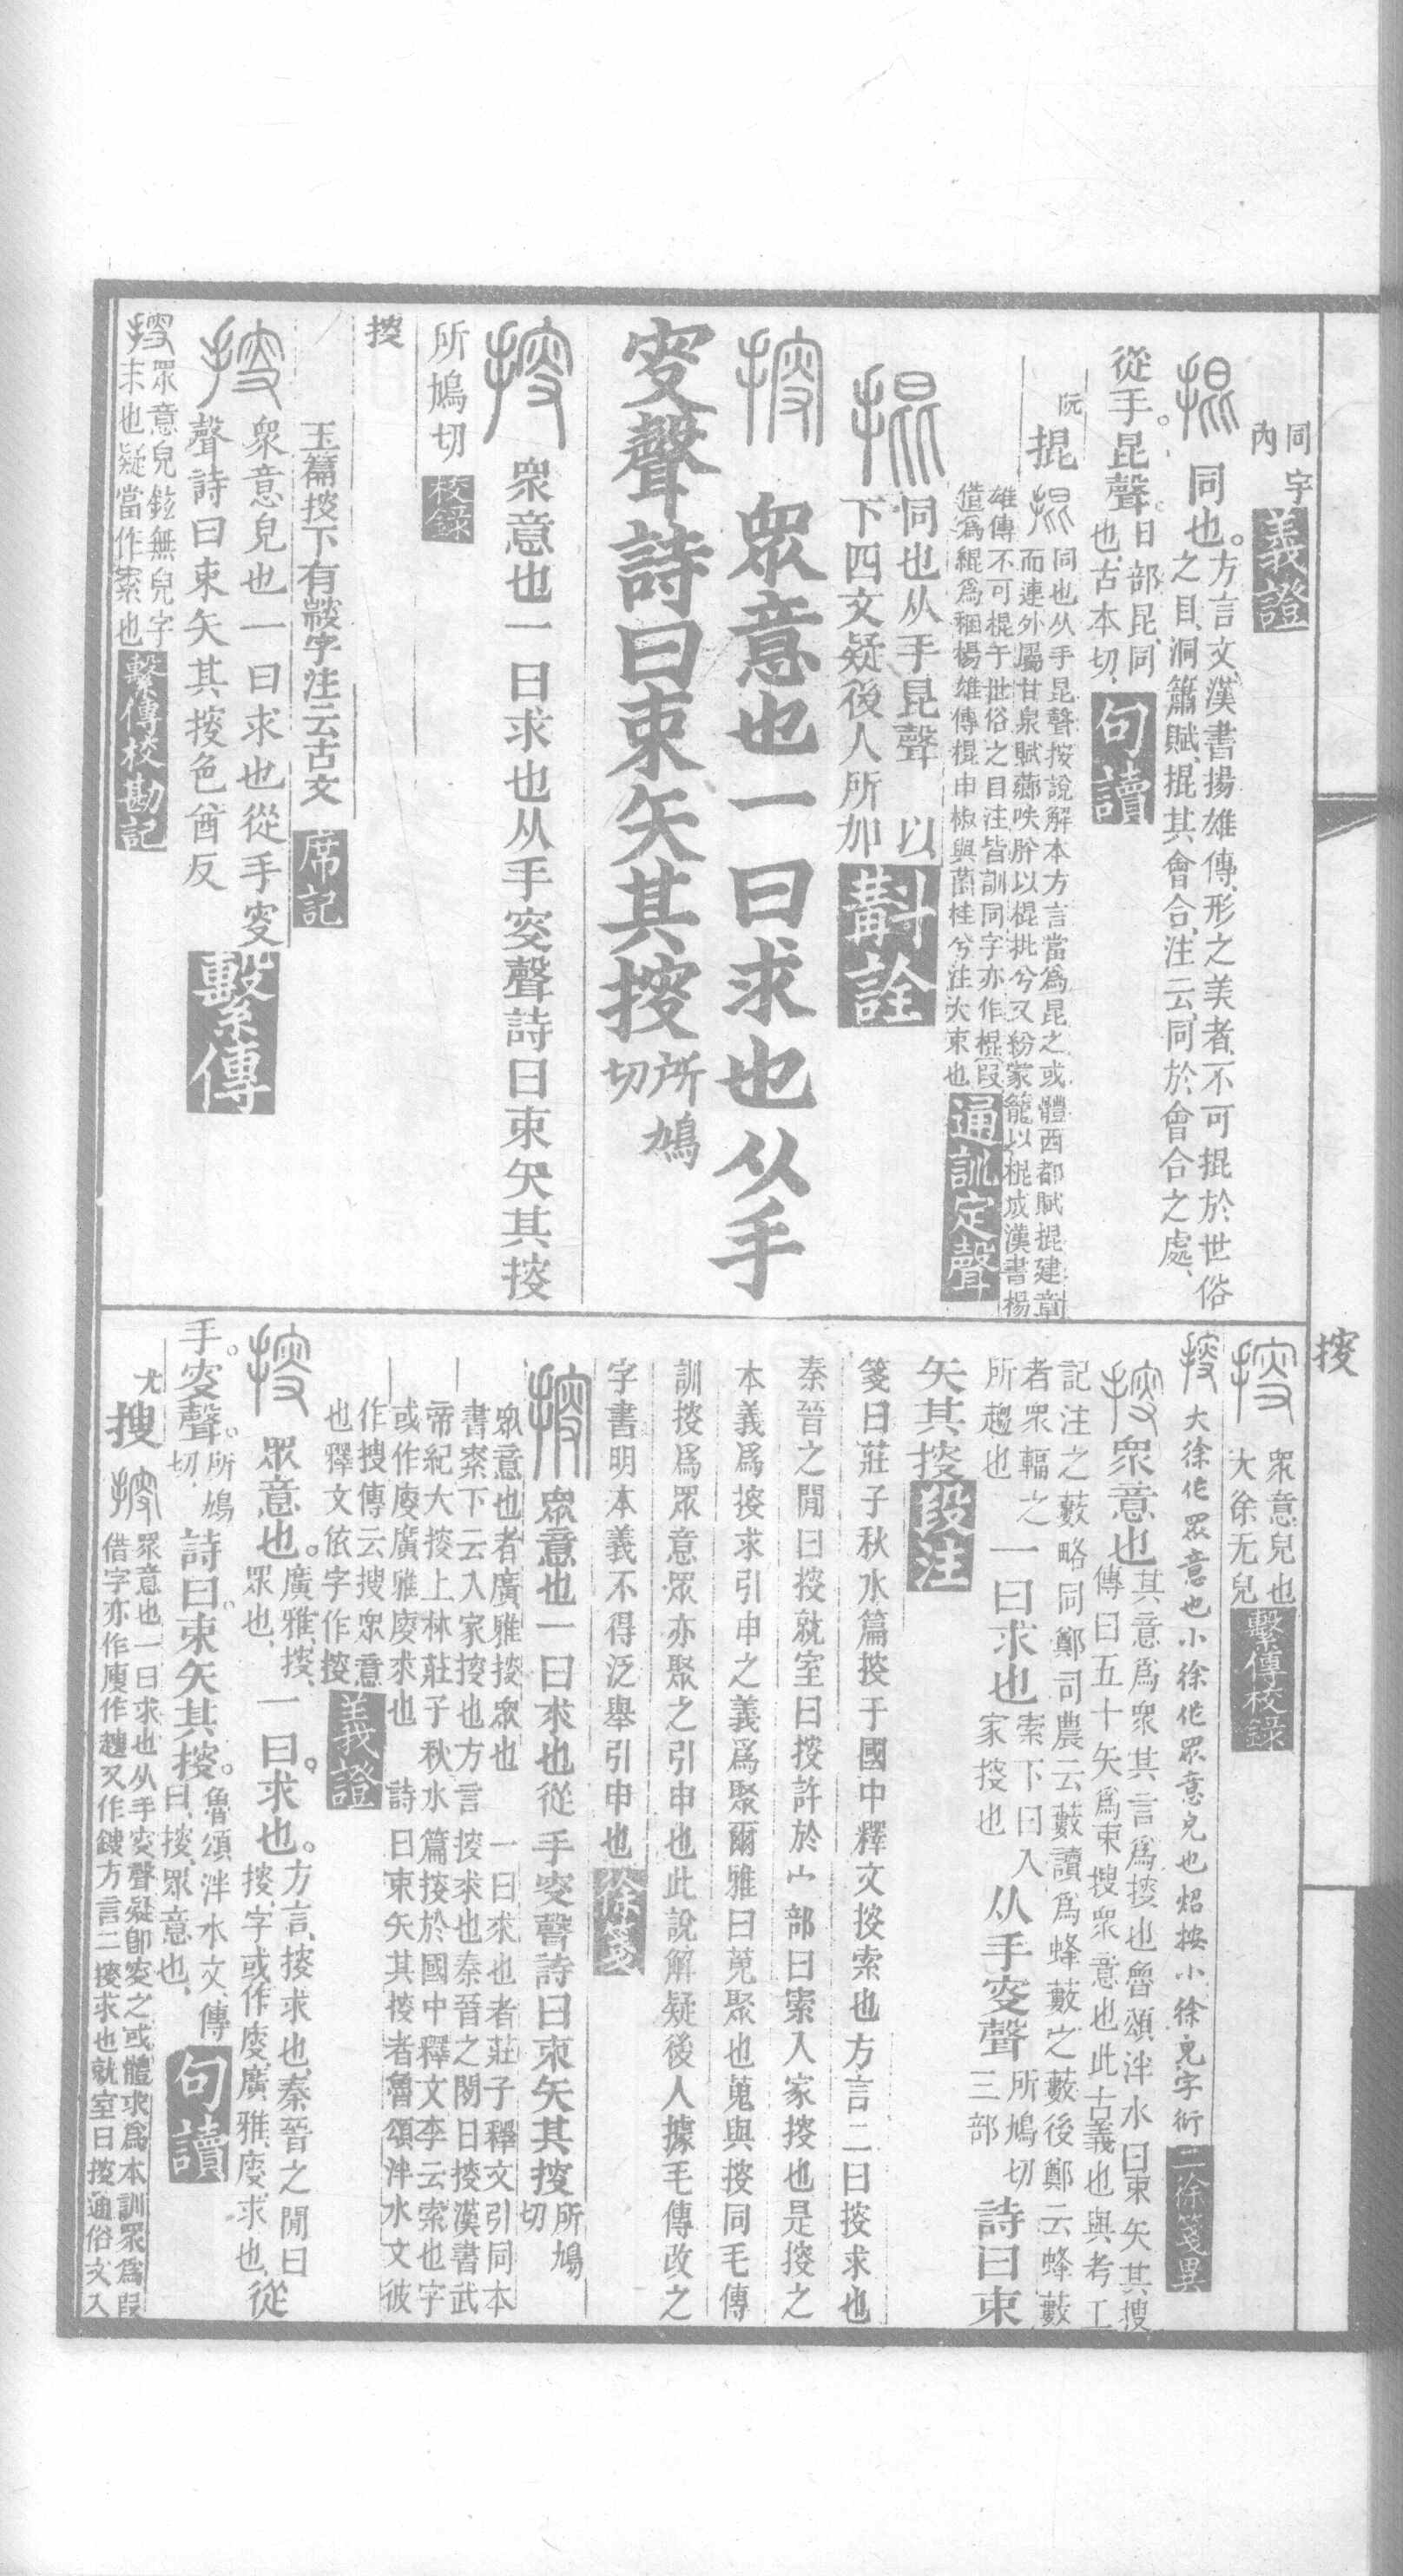 同字
內
義證
掍
同也。方言文、漢書揚雄傳、形之美者、不可掍於世俗
之目、洞簫賦、掍其會合、注云、同於會合之處、
從手。昆聲。日部昆、同
也、古本切、
句讀
阮
掍
掍
同也从手昆聲按說解本方言當爲昆之或體西都賦掍建章
而連外屬甘泉賦薌呹肸以棍批兮又紛蒙籠以棍成漢書楊
雄傳不可棍于世俗之目注皆訓同字亦作棍
爲緄爲稇楊雄傳棍申椒與菌桂兮注大束也
通訓定聲
掍
同也从手昆聲 以
下四文疑後人所加
斠詮
㨙
眾意也一曰求也从手
叜聲詩曰束矢其㨙所鳩
切
㨙
衆意也一曰求也从手叜聲詩曰束矢其㨙
所鳩切
校錄
㨙
玉篇㨙下有字注云古文
席記
㨙
衆意皃也一曰求也從手叜
聲詩曰束矢其㨙色酋反
繫傳
㨙
眾意皃鉉無皃字
末也疑當作索也
繫傳校勘記
㨙
㨙
衆意皃也
大徐无皃
繫傳校錄
㨙
大徐作眾意也小徐作眾意皃也炤按小徐皃字衍
二徐箋異
㨙
衆意也其意爲衆其言爲㨙也魯頌泮水曰束矢其搜
傳曰五十矢爲束搜衆意也此古義也與考工
記注之藪略同鄭司農云藪讀爲蜂藪之藪後鄭云蜂藪
者衆輻之
所趨也
一曰求也索下曰入
家㨙也
从手叜聲所鳩切
三部
詩曰束
矢其㨙
段注
箋曰莊子秋水篇㨙于國中釋文㨙索也方言二曰㨙求也
秦晉之閒曰㨙就室曰㨙許於宀部曰索入家㨙也是㨙之
本義爲㨙求引申之義爲聚爾雅曰蒐聚也蒐與㨙同毛傳
訓㨙爲眾意眾亦聚之引申也此說解疑後人據毛傳改之
字書明本義不得泛舉引申也
徐箋
㨙
眾意也一曰求也從手叜聲詩曰束矢其㨙所鳩
切
眾意也者廣雅㨙眾也 一曰求也者莊子釋文引同本
書索下云入家㨙也方言㨙求也秦晉之閒曰㨙漢書武
帝紀大㨙上林莊子秋水篇㨙於國中釋文李云索也字
或作廋廣雅廋求也 詩曰束矢其㨙者魯頌泮水文彼
作搜傳云搜眾意
也釋文依字作㨙
義證
㨙
眾意也。廣雅、㨙、
眾也、
一曰。求也。方言、㨙求也、秦晉之閒曰
㨙、字或作廋、廣雅、廋、求也、
從
手。叜聲。所鳩
切、
詩曰。束矢其㨙。魯頌泮水文、傳
曰、㨙、眾意也、
句讀
尤
搜
㨙
眾意也一曰求也从手叜聲疑卽叜之或體求爲本訓眾爲叚
借字亦作廋作又作鎪方言二㨙求也就室曰㨙通俗文入